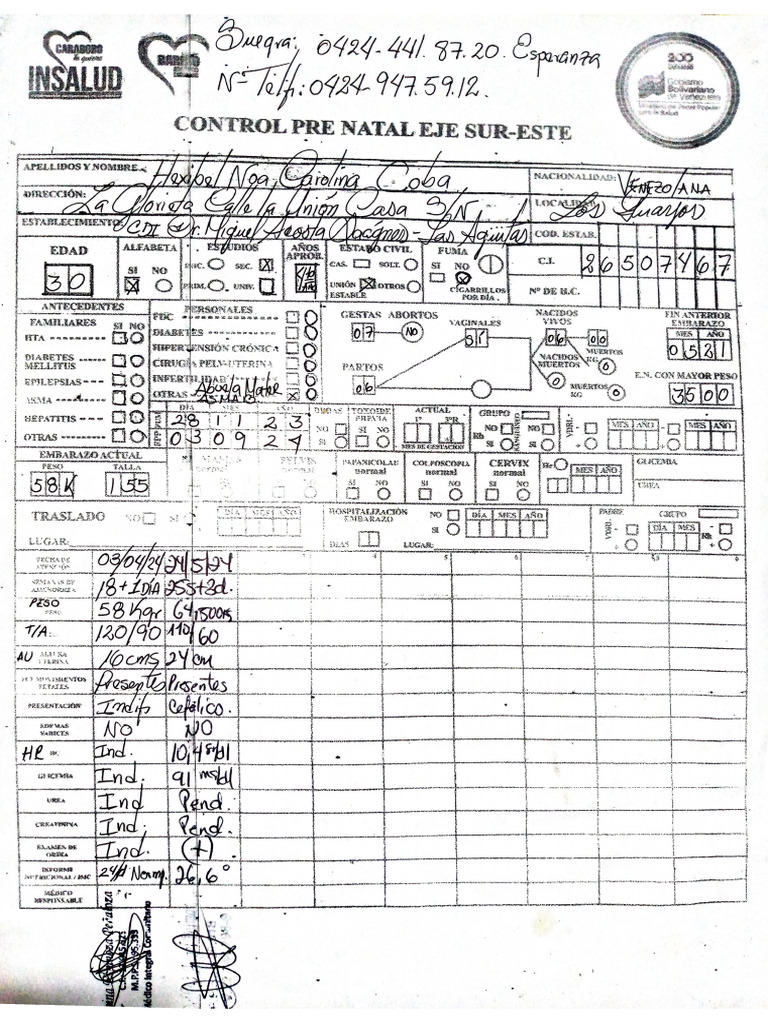 CARABORO
te quiere
INSALUD
BARRIO
Suegra: 0424-441.87.20. Esperanza
N- Telf: 0424-947.59.12.
200
Gobierno
Bolivariano
de Venezuela
Ministerio del Poder Popular
para la Salud
CONTROL PRE NATAL EJE SUR-ESTE
APELLIDOS Y NOMBRE: Hexibel Noa, Carolina Coba
NACIONALIDAD: VENEZOLANA
DIRECCIÓN: La Glorieta Calle la Unión Casa S/N
LOCALIDAD: Los Guayos
ESTABLECIMIENTO: CDI Dr. Miguel Acosta - Las Agüitas
COD. ESTAB.
EDAD 30
ALFABETA SI X NO
ESTUDIOS SEC. X PRIM. UNIV.
AÑOS APROB.
ESTADO CIVIL CAS. SOLT. UNIÓN ESTABLE X OTROS
FUMA SI NO
CIGARRILLOS POR DÍA.
C.I. 26507467
Nº DE B.C.
ANTECEDENTES
FAMILIARES SI NO
HTA
DIABETES MELLITUS
EPILEPSIAS
ASMA
HEPATITIS
OTRAS
PERSONALES
TDC
DIABETES
HIPERTENSIÓN CRÓNICA
CIRUGÍA PELV-UTERINA
INFERTILIDAD
OTRAS Abuela Mater ASMA
GESTAS 07 ABORTOS NO
VAGINALES
PARTOS 06
NACIDOS VIVOS 06
MUERTOS 00
NACIDOS MUERTOS 0
MUERTOS 0
FIN ANTERIOR EMBARAZO
MES AÑO
0521
E.N. CON MAYOR PESO
3500
DÍA MES AÑO
FUM 28 11 23
FPP 03 09 24
DUDAS NO SI
TOXOIDE PREVIA SI NO
ACTUAL 1ª
MES DE GESTACIÓN
GRUPO
Rh
VDRL
MES AÑO
MES AÑO
EMBARAZO ACTUAL
PESO 58K
TALLA 155
PAPANICOLAU normal SI NO
COLPOSCOPIA normal SI NO
CERVIX normal SI NO
MES AÑO
GLICEMIA
UREA
TRASLADO NO SI
DÍA MES AÑO
LUGAR:
HOSPITALIZACIÓN EMBARAZO NO SI
DÍA MES AÑO
DIAS
LUGAR:
PADRE
VDRL
GRUPO
DÍA MES AÑO
Rh
FECHA DE ATENCIÓN 03/04/24 24/5/24
SEMANAS DE AMENORREA 18+1DIA 25s+3d.
PESO 58 Kgr 64,500
T/A: 120/90 110/60
AU ALTURA UTERINA 16 cms 24 cm
MOVIMIENTOS FETALES Presentes Presentes
PRESENTACIÓN Indif Cefálico.
EDEMAS VARICES NO NO
HB Ind. 10,4 gr/dl
GLICEMIA Ind. 91 mg/dl
UREA Ind Pend.
CREATININA Ind. Pend.
EXAMEN DE ORINA Ind. (+)
INFORME NUTRICIONAL / IMC 24/1 Normp. 26,6°
MÉDICO RESPONSABLE
Médico Integral Comunitario